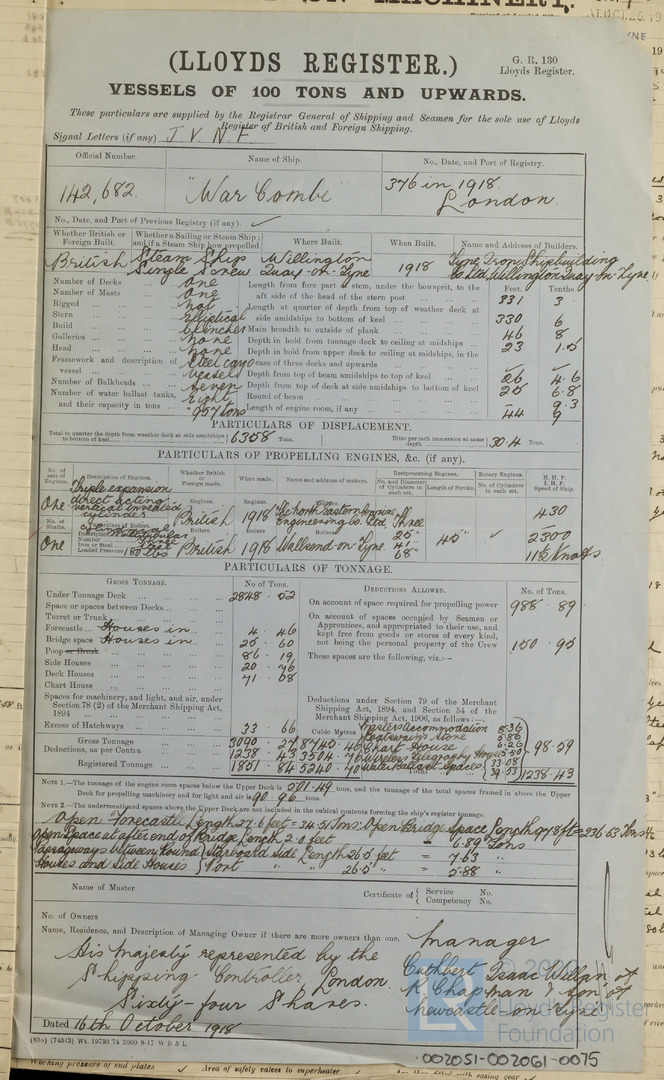 (LLOYDS REGISTER.)
G. R. 130
Lloyds Register.
VESSELS OF 100 TONS AND UPWARDS.
These particulars are supplied by the Registrar General of Shipping and Seamen for the sole use of Lloyds
Register of British and Foreign Shipping.
Signal Letters (if any) J. V. N. F.
Official Number. Name of Ship. No., Date, and Port of Registry.
142,682 "War Combe" 376 in 1918. London.
No., Date, and Port of Previous Registry (if any).
Whether British or Foreign Built. Whether a Sailing or Steam Ship; and if a Steam Ship how propelled. Where Built. When Built. Name and Address of Builders.
British Steam Ship Single Screw Willington Quay-on-Tyne 1918 Tyne Iron Shipbuilding Co Ltd, Willington Quay on Tyne
Number of Decks one
Number of Masts one
Rigged not
Stern elliptical
Build clincher
Galleries none
Head none
Framework and description of vessel steel cargo vessel
Number of Bulkheads seven
Number of water ballast tanks, and their capacity in tons eight 957 tons
Feet. Tenths
Length from fore part of stem, under the bowsprit, to the aft side of the head of the stern post 331 3
Length at quarter of depth from top of weather deck at side amidships to bottom of keel 330 6
Main breadth to outside of plank 46 8
Depth in hold from tonnage deck to ceiling at midships 23 1.05
Depth in hold from upper deck to ceiling at midships, in the case of three decks and upwards
Depth from top of beam amidships to top of keel 26 4.6
Depth from top of deck at side amidships to bottom of keel 25 6.8
Round of beam 9.3
Length of engine room, if any 44 9
PARTICULARS OF DISPLACEMENT.
Total to quarter the depth from weather deck at side amidships to bottom of keel 6358 Tons.
Ditto per inch immersion at same depth 30.4 Tons.
PARTICULARS OF PROPELLING ENGINES, &c. (if any).
No. of sets of Engines. Description of Engines. Whether British or Foreign made. When made. Name and address of makers. Reciprocating Engines. No. and Diameter of Cylinders in each set. Length of Stroke. Rotary Engines. No. of Cylinders in each set. N. H. P. I. H. P. Speed of Ship.
One Triple expansion direct acting vertical inverted cylinder British 1918 The North Eastern Marine Engineering Co. Ltd Three 25" 41" 68" 45" 430
No. of Shafts. Particulars of Boilers.
Description
Number
Iron or Steel Steel
Loaded Pressure 180 lbs
One British 1918 Wallsend-on-Tyne 2300
11½ Knots
PARTICULARS OF TONNAGE.
GROSS TONNAGE. No of Tons.
Under Tonnage Deck 2848 . 52
Space or spaces between Decks
Turret or Trunk
Forecastle Houses in 4 . 46
Bridge space Houses in 25 . 60
Poop or Break 86 19
Side Houses 20 . 76
Deck Houses 71 08
Chart House
Spaces for machinery, and light, and air, under Section 78 (2) of the Merchant Shipping Act, 1894
Excess of Hatchways 33 . 66
Gross Tonnage 3090 . 27 8745 . 46
Deductions, as per Contra 1238 . 43 3504 . 76
Registered Tonnage 1851 . 84 5240 . 70
Cubic Metres
DEDUCTIONS ALLOWED. No. of Tons.
On account of space required for propelling power 988 . 89
On account of spaces occupied by Seamen or Apprentices, and appropriated to their use, and kept free from goods or stores of every kind, not being the personal property of the Crew 150 . 95
These spaces are the following, viz.:—
Deductions under Section 79 of the Merchant Shipping Act, 1894, and Section 54 of the Merchant Shipping Act, 1906, as follows:—
Masters Accommodation 8.36
Boatswains Store 5.86
Chart House 6.26
Wireless Telegraphy House 5.50
Water Ballast Spaces 33.08
39.53
98.59
Total 1238.43
NOTE 1.—The tonnage of the engine room spaces below the Upper Deck is 501.49 tons, and the tonnage of the total spaces framed in above the Upper
Deck for propelling machinery and for light and air is 90.96 tons.
NOTE 2.—The undermentioned spaces above the Upper Deck are not included in the cubical contents forming the ship's register tonnage.
Open Forecastle Length 27.6 feet = 34.51 Tons: Open Bridge Space Length 97.8 ft = 236.63 Tons
Open Space at after end of Bridge Length 2.0 feet = 6.89 Tons
Passageways between Round Houses and Side Houses { Starboard side Length 26.5 feet = 7.63 "
Port " " 26.5 " = 5.88 "
Name of Master
Certificate of { Service No.
Competency No.
No. of Owners
Name, Residence, and Description of Managing Owner if there are more owners than one.
His Majesty represented by the
Shipping Controller, London.
Sixty-four Shares.
Manager
Cuthbert Isaac Willan, of
R Chapman & Son of
Newcastle-on-Tyne
Dated 16th October 1918
(83o) (74343) Wt. 19793/74 2000 8-17 W B & L
© 20
Lloyd's Register
Foundation
002051-002061-0075
Working pressure of end plates
Area of safety valves to superheater